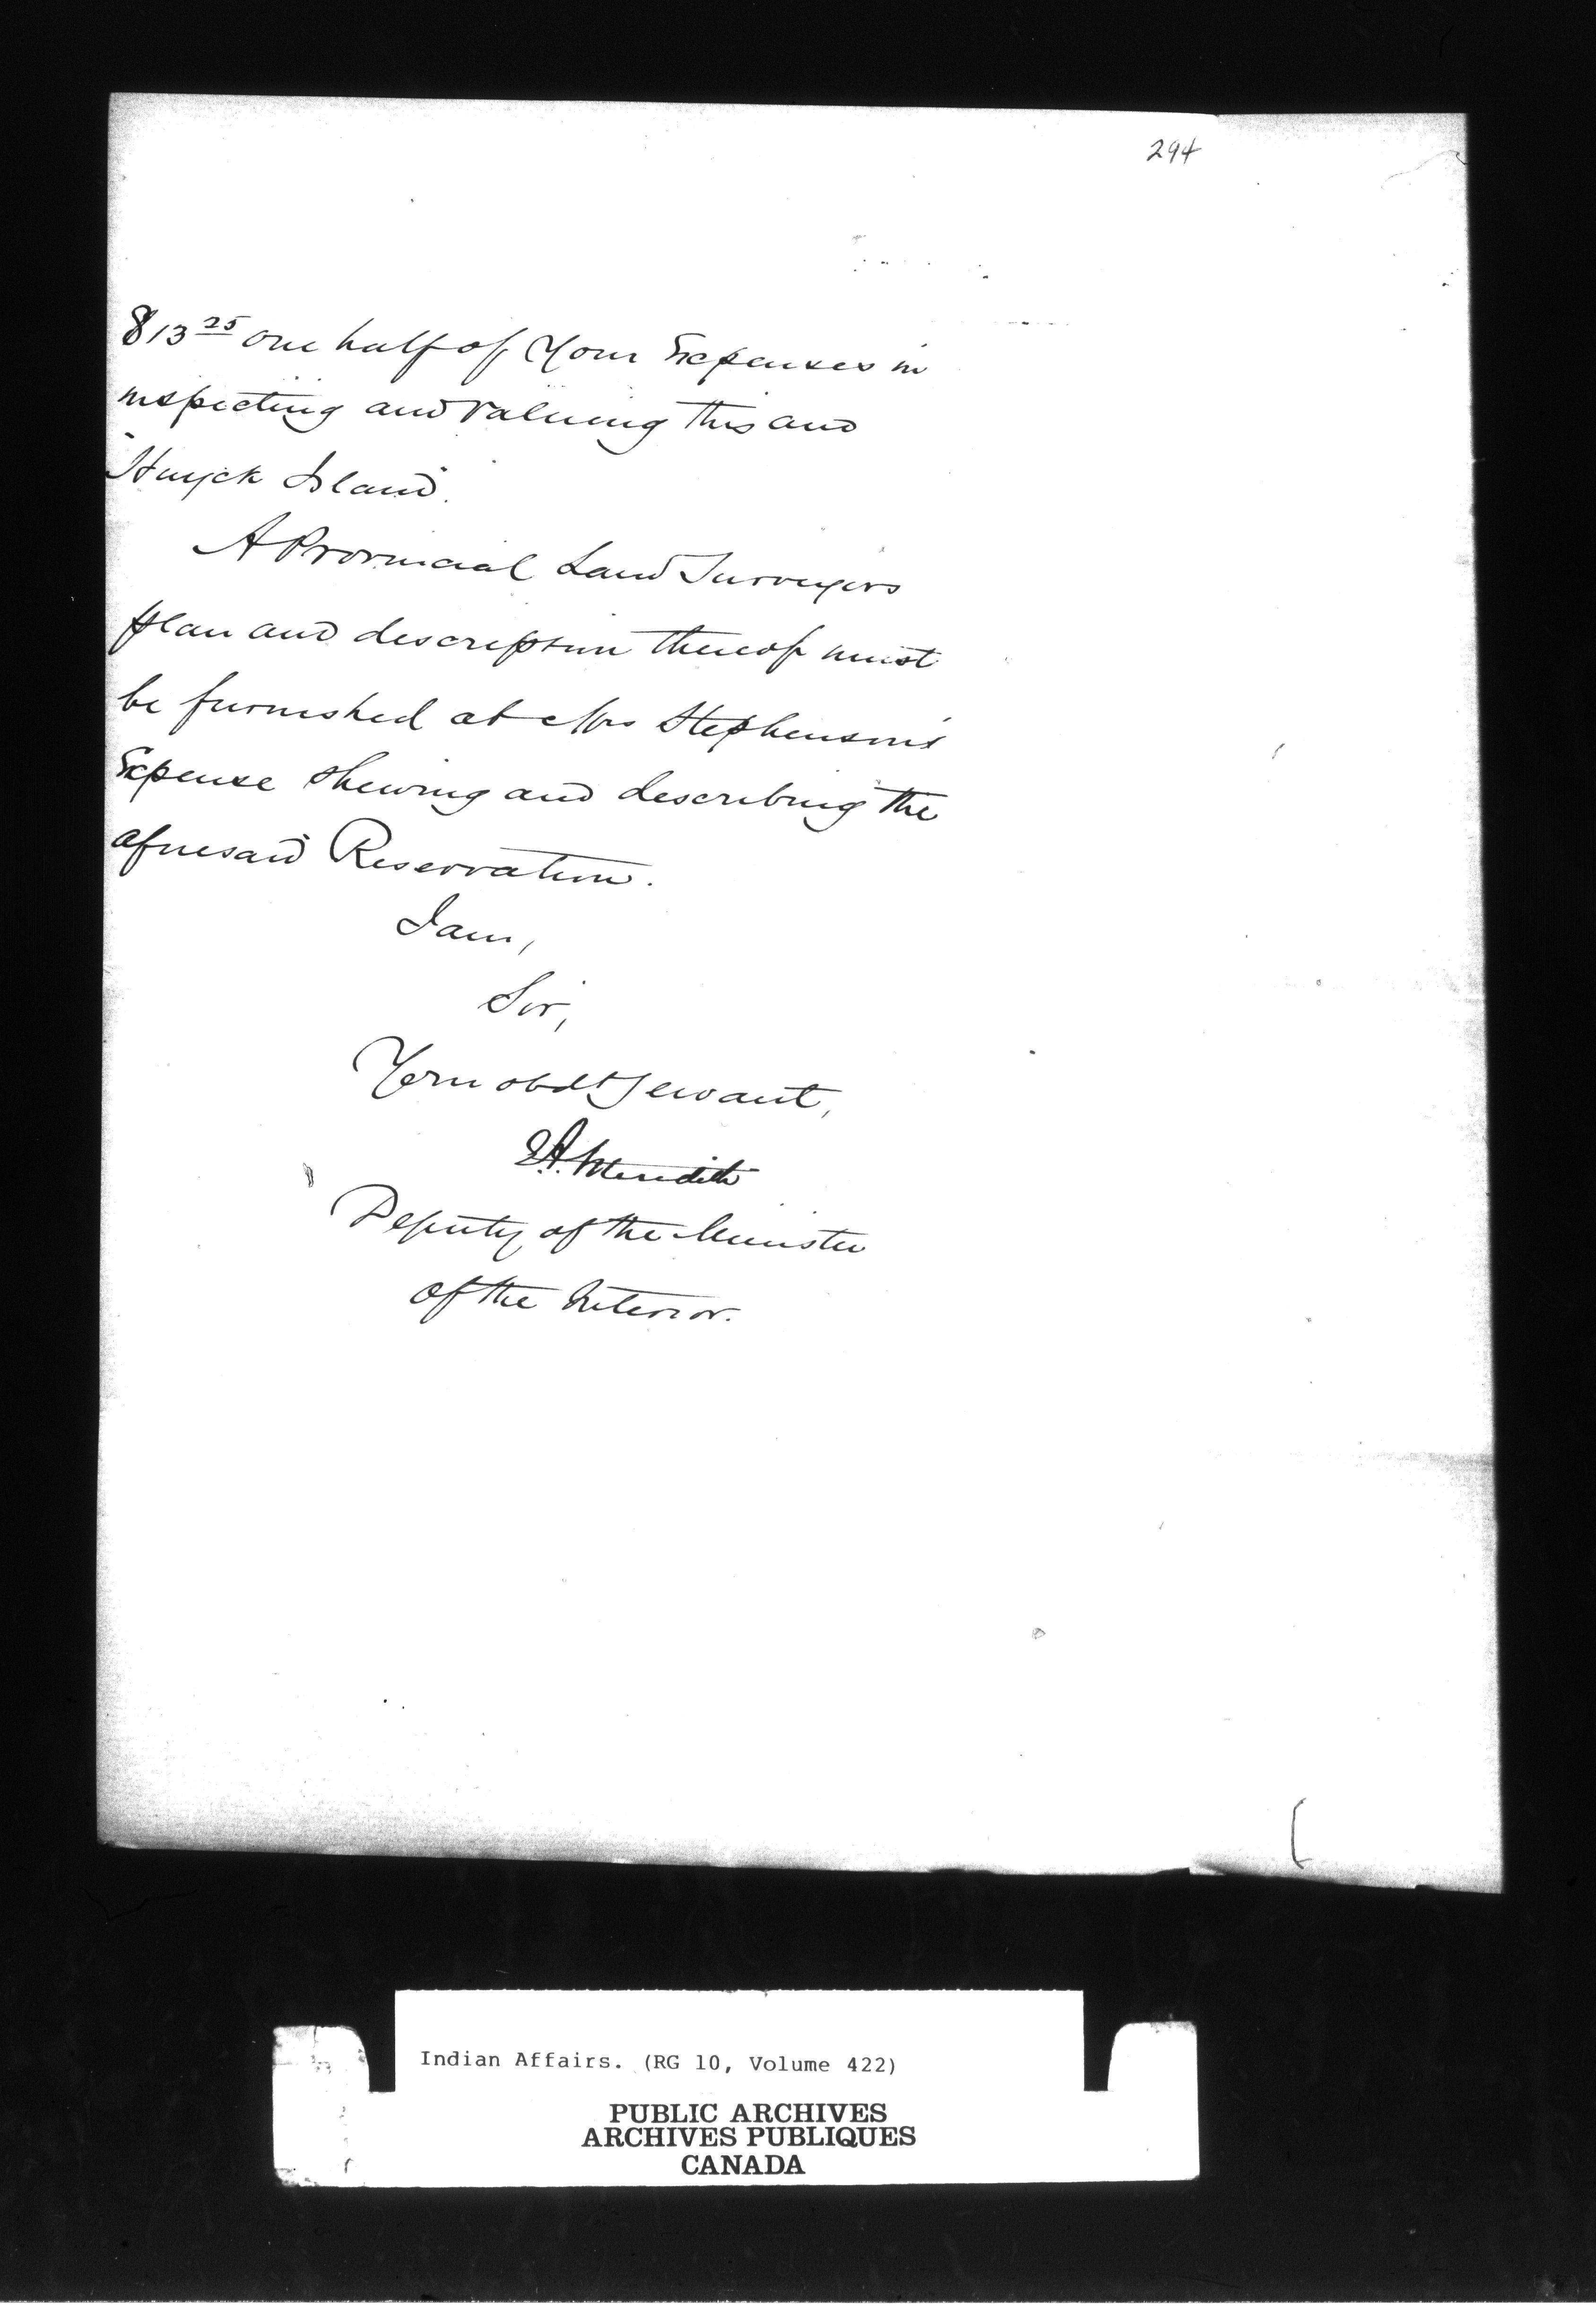 294
$13 25 one half of Your Expenses in
inspecting and valuing this and
"Huyck Island".
A Provincial Land Surveyors
plan and description thereof must
be furnished at Mrs Stephenson's
Expense shewing and describing the
aforesaid Reservation.
I am,
Sir,
Your obdt Servant,
E.A. Meredith
Deputy of the Minister
of the Interior.
Indian Affairs. (RG 10, Volume 422)
PUBLIC ARCHIVES
ARCHIVES PUBLIQUES
CANADA